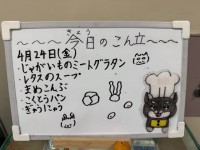 ～～～今日のこん立～～～
きょう
4月24日(金)
・じゃがいものミートグラタン
・レタスのスープ
・まめこんぶ
・こくとうパン
・ぎゅうにゅう